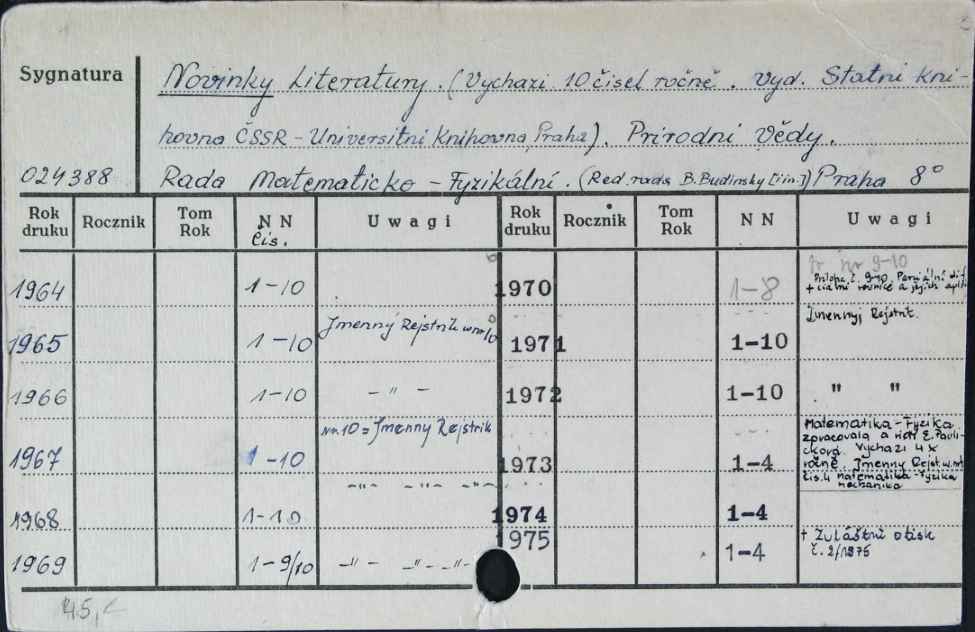 Sygnatura
Novinky Literatury. (Vychazi 10 čisel ročně. Vyd. Statni kni-
hovna ČSSR – Universitni Knihovna, Praha). Prirodni Vědy.
024388 Rada Matematicko – Fyzikální. (Red. rada B. Budinsky [iin.]) Praha 8°
Rok druku Rocznik Tom Rok N N Čis. Uwagi Rok druku Rocznik Tom Rok N N Uwagi
1964 1-10 1970 1-8 nr 9-10
Priloha č. 9-10
+ rovnice a jejich
1965 1-10 Jmenný Rejstrik w nr 10 1971 1-10 Jmennyj Rejstrik.
1966 1-10 – " – 1972 1-10 " "
1967 1-10 Nr. 10 = Jmenny Rejstrik 1973 1-4 Matematika – Fyzika
zpracovala a
Vychazi 4 x
ročně. Jmenny Rejst. w nr
čis. 4 matematika – fyzika
mechanika
–"– –"– –"–
1968 1-10 1974 1-4
1975 1-4 + Zvláštní otisk
č. 2/1975
1969 1-9/10 –"– –"– –"–
45,-